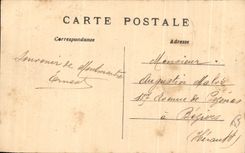 CARTE POSTALE
Correspondance
Adresse
Souvenir de Montmartre
Ernest
Monsieur
Augustin
Avenue de Pézenas
à Béziers
Hérault